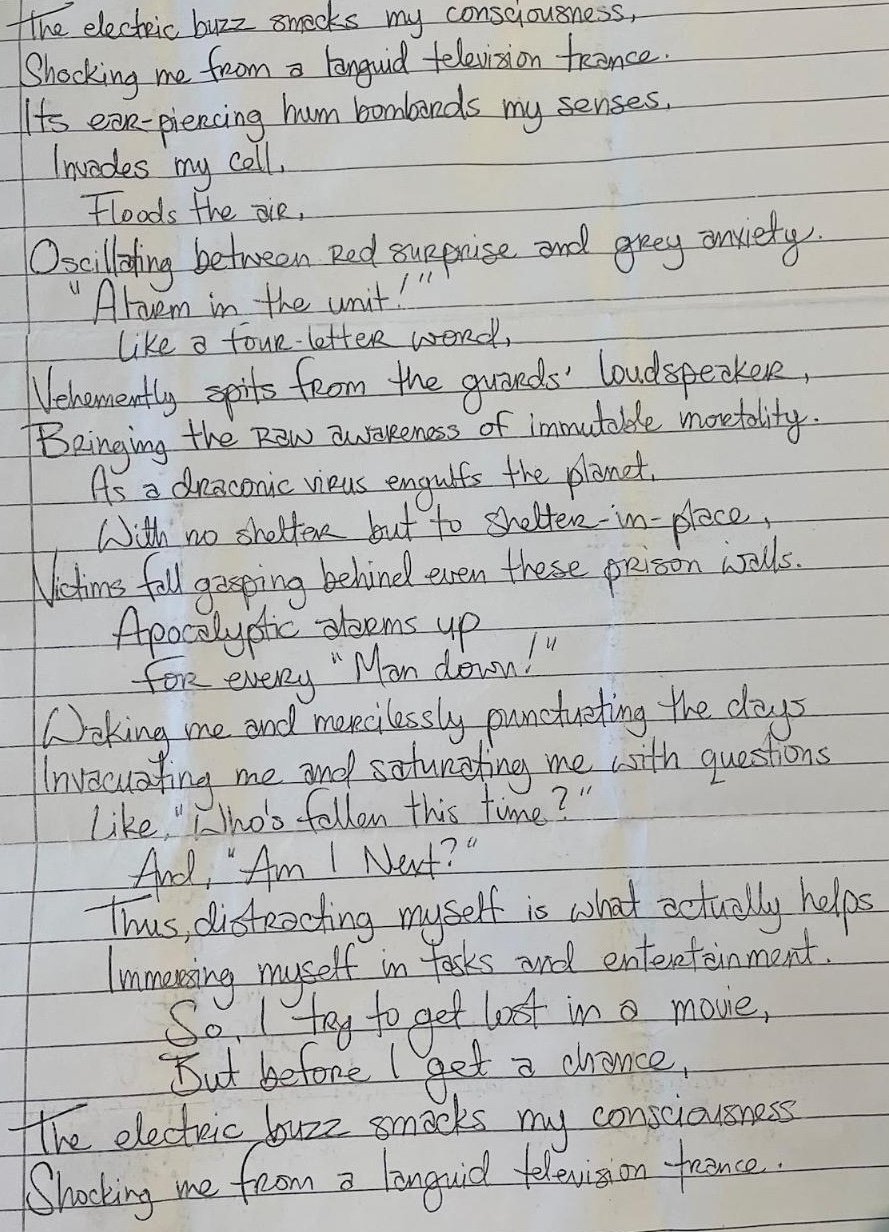 The electric buzz smacks my consciousness,
Shocking me from a languid television trance.
Its ear-piercing hum bombards my senses,
Invades my cell,
Floods the air,
Oscillating between Red surprise and grey anxiety.
"Alarm in the unit!"
Like a four-letter word,
Vehemently spits from the guards' loudspeaker,
Bringing the Raw awareness of immutable mortality.
As a draconic virus engulfs the planet,
With no shelter but to shelter-in-place,
Victims fall gasping behind even these prison walls.
Apocalyptic alarms up
for every "Man down!"
Waking me and mercilessly punctuating the days
Invacuating me and saturating me with questions
Like, "Who's fallen this time?"
And, "Am I Next?"
Thus, distracting myself is what actually helps
Immersing myself in tasks and entertainment.
So, I try to get lost in a movie,
But before I get a chance,
The electric buzz smacks my consciousness
Shocking me from a languid television trance.